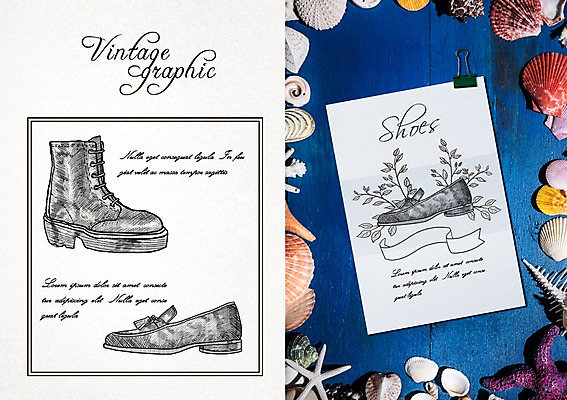 Vintage
graphic
Nulla eget consequat ligula In feu
giat velit ac massa tempor sagittis
Lorem ipsum dolor sit amet consecte
tur adipiscing elit Nulla eget conse
quat ligula
Shoes
Lorem ipsum dolor sit amet consecte
tur adipiscing elit Nulla eget conse
quat ligula